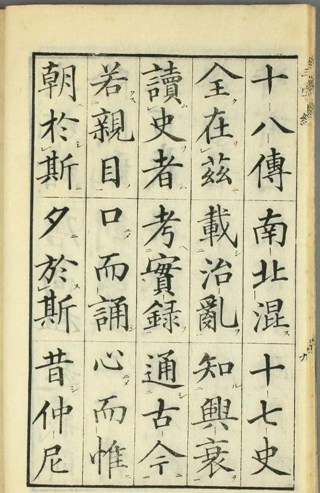 十八傳南北混十七史
全在茲載治亂知興衰
讀史者考實録通古今
若親目口而誦心而惟
朝於斯夕於斯昔仲尼